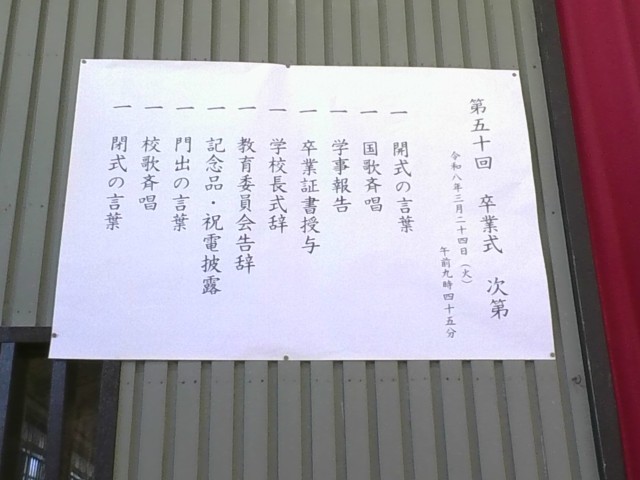 第五十回 卒業式 次第
令和八年三月二十四日（火）
午前九時四十五分
一 開式の言葉
一 国歌斉唱
一 学事報告
一 卒業証書授与
一 学校長式辞
一 教育委員会告辞
一 記念品・祝電披露
一 門出の言葉
一 校歌斉唱
一 閉式の言葉